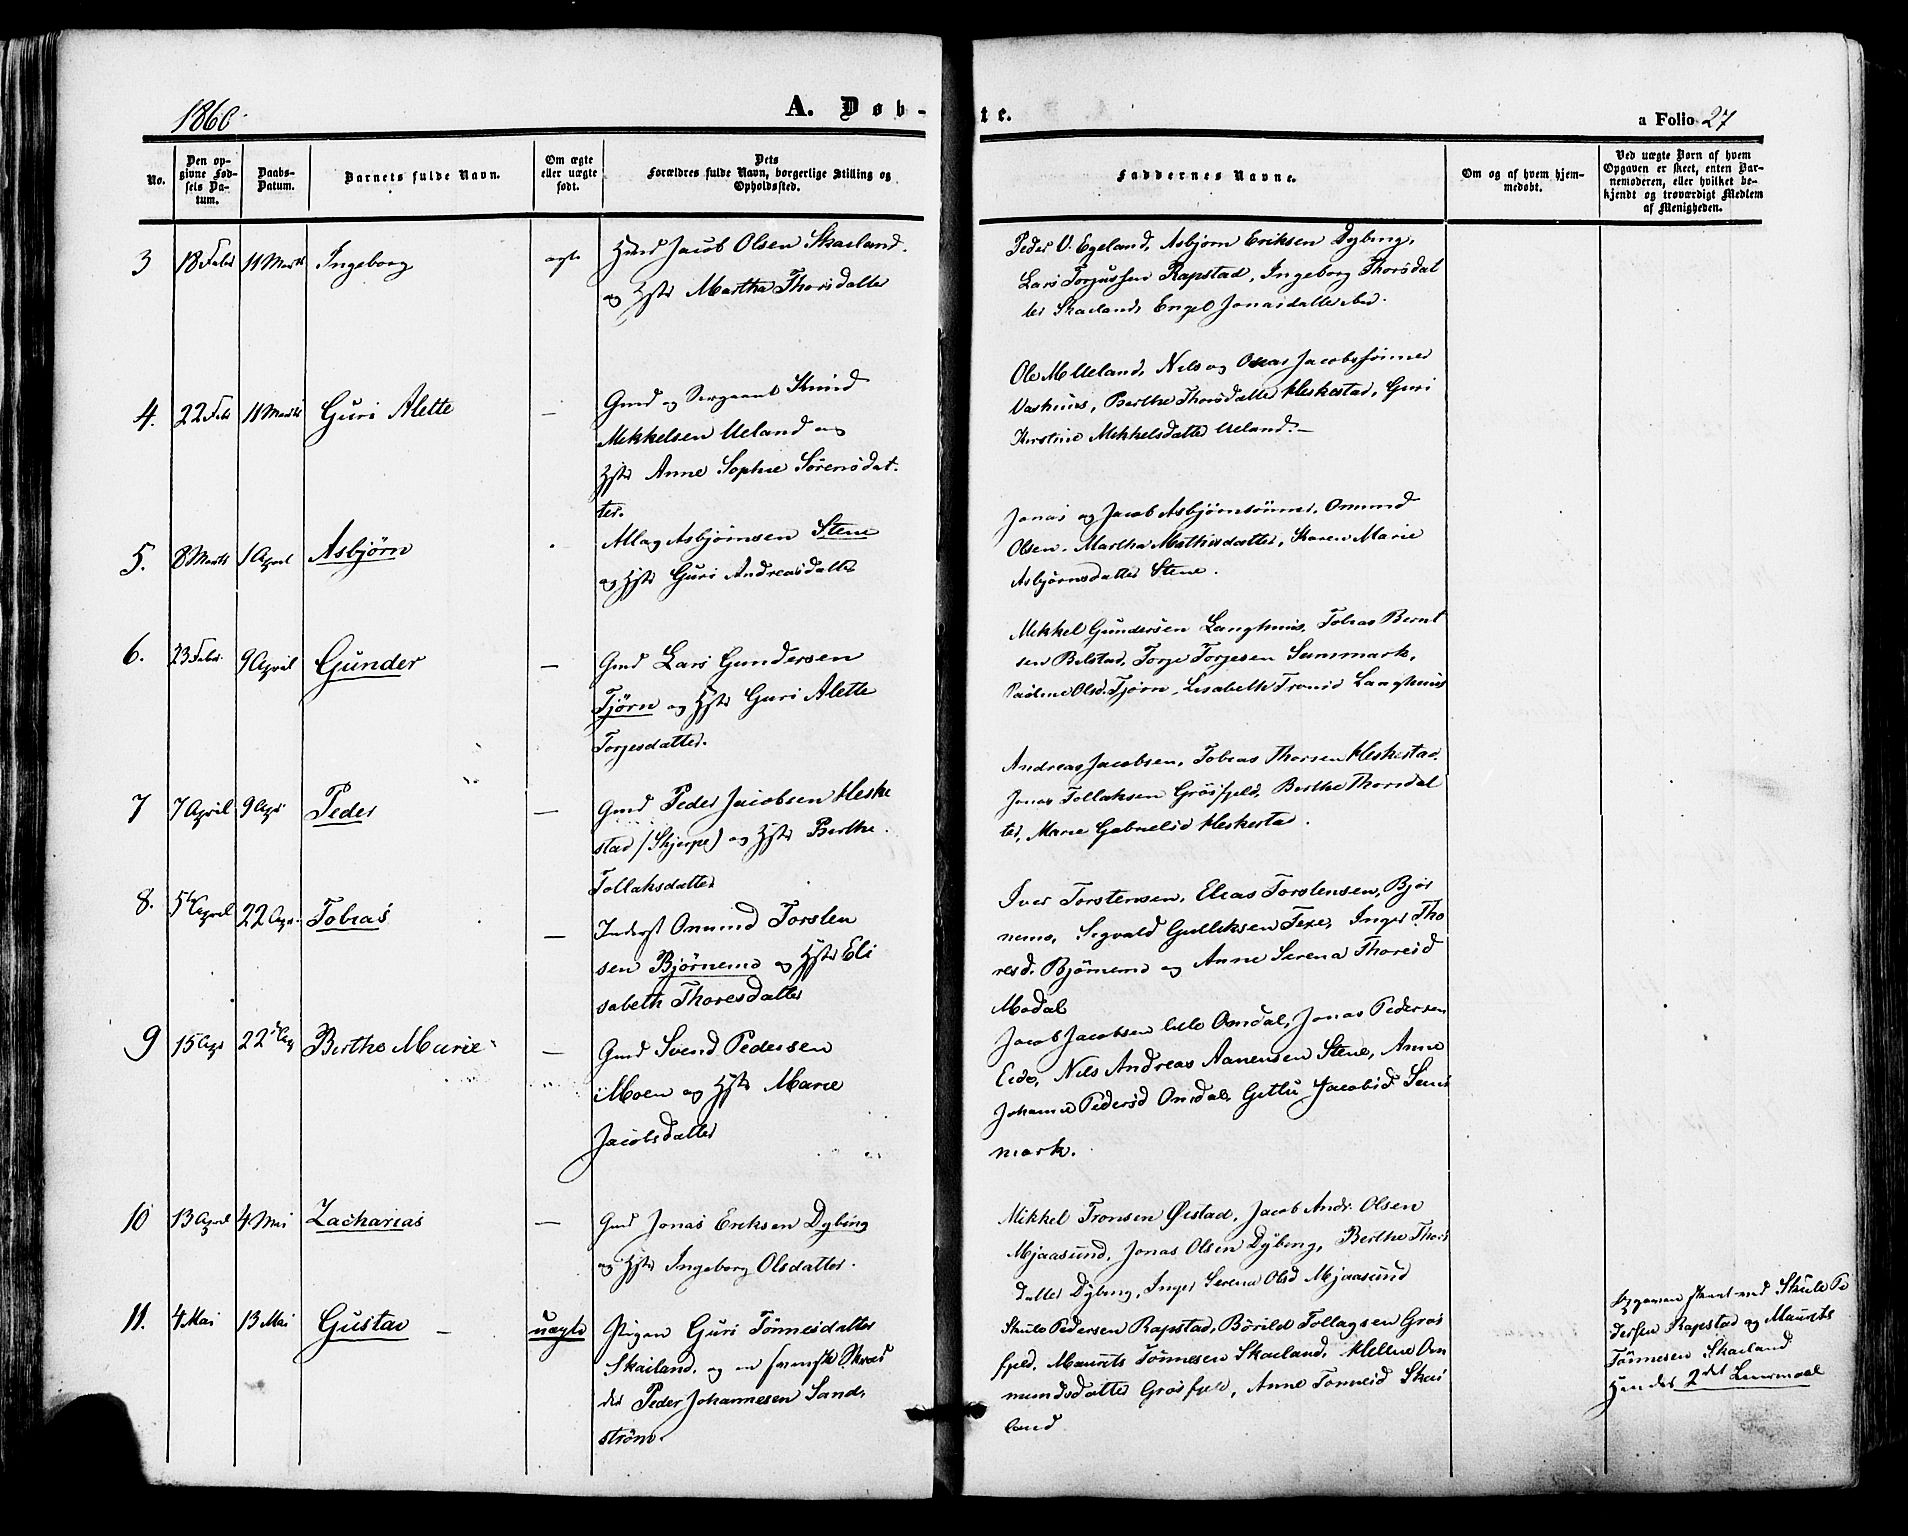 1860.
A. Døb-
te.
a Folio 27
No.
Den op-
givne Fød-
sels Da-
tum.
Daabs-
Datum.
Barnets fulde Navn.
Om ægte
eller uægte
født.
Dets
Forældres fulde Navn, borgerlige Stilling og
Opholdssted.
Faddernes Navne.
Om og af hvem hjem-
medøbt.
Ved uægte Børn af hvem
Opgaven er skeet, enten Bar-
nemoderen, eller hvilket be-
kjendt og troværdigt Medlem
af Menigheden.
3
18 Febr
11 Marts
Ingeborg
ægte
Jacob Olsen Skaeland
og Hstr Martha Thorsdatter
Peder O. Egeland, Asbjørn Eriksen Dybing,
Lars Torjussen Rapstad, Ingeborg Thorsdat
ter Skaeland, Engel Jonasdatter ibd.
4.
22 Feb
11 Marts
Guri Alette
—
Gmd og Sergeant Knud
Mikkelsen Ueland og
Hstr Anne Sophie Sørensdat-
ter.
Ole M Ueland, Nils og Jacobsønner
Vashuus, Berthe Thorsdatter Heskestad, Guri
Kirstine Mikkelsdatter Ueland. —
5.
8 Marts
1 April
Asbjørn
Asbjørnsen Stene
og Hstr Guri Andreasdatter
Jonas og Jacob Asbjørnsønner, Omund
Olsen, Martha Mathisdatter, Karen Marie
Asbjørnsdatter Stene.
6.
23 Febr.
9 April
Gunder
—
Gmd Lars Gundersen
Tjørn og Hstr Guri Alette
Torjesdatter.
Mikkel Gundersen Langhuus, Tobias Bernt
sen Bilstad, Torje Torjesen Sunmark,
Olsd. Tjørn, Lisabeth Tronsd Laaghuus
7
7 April
9 Apr
Peder
—
Gmd Peder Jacobsen Heske
stad (Skjerpe) og Hstr Berthe
Tollaksdatter
Andreas Jacobsen, Tobias Thorsen Heskestad,
Jonas Tollaksen Grøsfjeld, Berthe Thorsdat
ter, Marie Gabrielsd Heskestad.
8.
5t April
22 Apr.
Tobias
—
Inderst Omund Torsten
sen Bjørnemo og Hstr Eli
sabeth Thoresdatter
Iver Torstensen, Elias Torstensen, Bjør
nemo, Sigvald Gulliksen Texe, Inger Tho
resd. Bjørnemo og Anne Serena Thoresd
Modal
9
15 Apr
22d Ap
Berthe Marie
—
Gmd Svend Pedersen
iMoen og Hstr Marie
Jacobsdatter
Jacob Jacobsen lille Omdal, Jonas Pedersen
Eide, Nils Andreas Aanensen Stene, Anne
Johanne Pedersd Omdal, Gitlu Jacobsd Sun
mark.
10
13 April
4 Mai
Zacharias
—
Gmd Jonas Eriksen Dybing
og Hstr Ingeborg Olsdatter.
Mikkel Tronsen Øistad, Jacob Andr. Olsen
Mjaasund, Jonas Olsen Dybing, Berthe Thors
datter Dybing, Inger Serena Olsd Mjaasund
11.
4 Mai
13 Mai
Gustav —
uægte
Pigen Guri Tønnesdatter
Skaeland, og en svensk Skræd
der Peder Johannesen Sand-
strøm.
Skule Pedersen Rapstad, Bårild Tollagsen Grøs
fjeld, Maurits Tønnesen Skaeland, Helene Om
mundsdatter Grøsfjeld, Anne Tønnesd Skae
land
Opgaven skeet ved Skule Pe
dersen Rapstad og Maurits
Tønnesen Skaeland
Hendes 2det Leiermaal